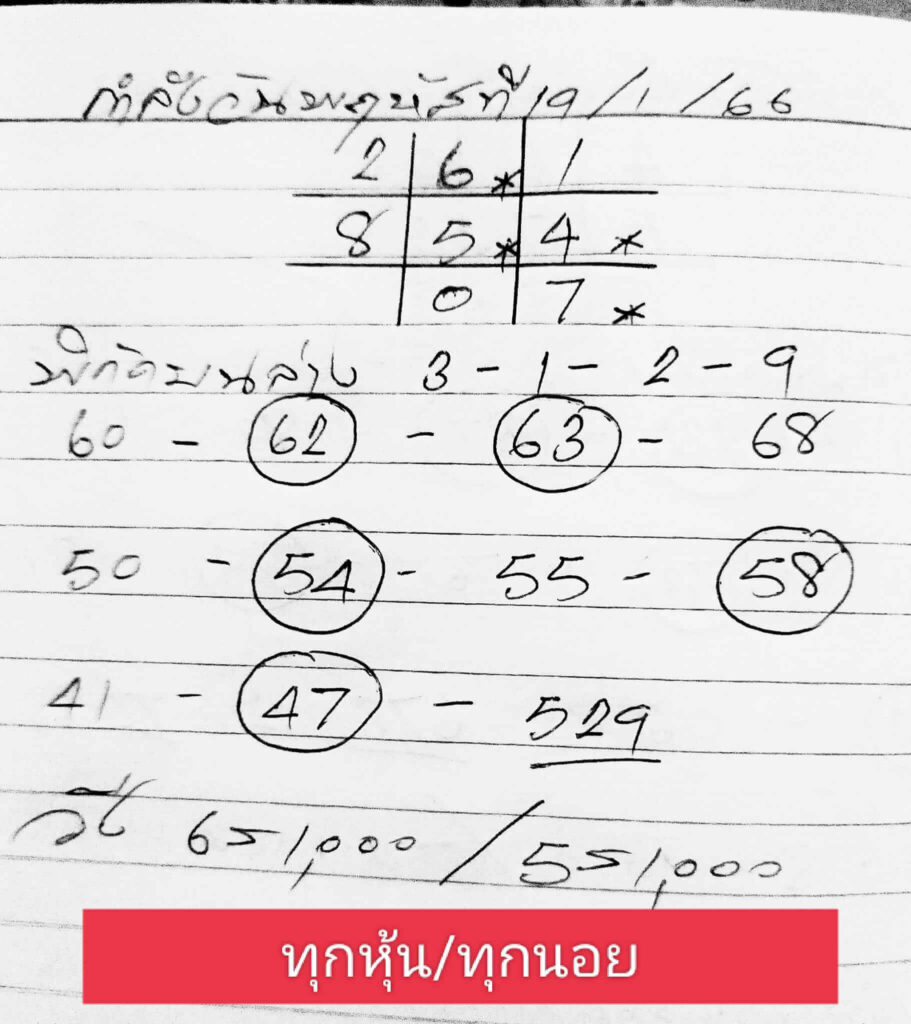 กำลังวันพฤหัสที่ 19/1/66
2 | 6* | 1
8 | 5* | 4*
0 | 7*
พิกัดบนล่าง 3-1-2-9
60 - 62 - 63 - 68
50 - 54 - 55 - 58
41 - 47 - 529
6=1,000 / 5=1,000
ทุกหุ้น/ทุกนอย